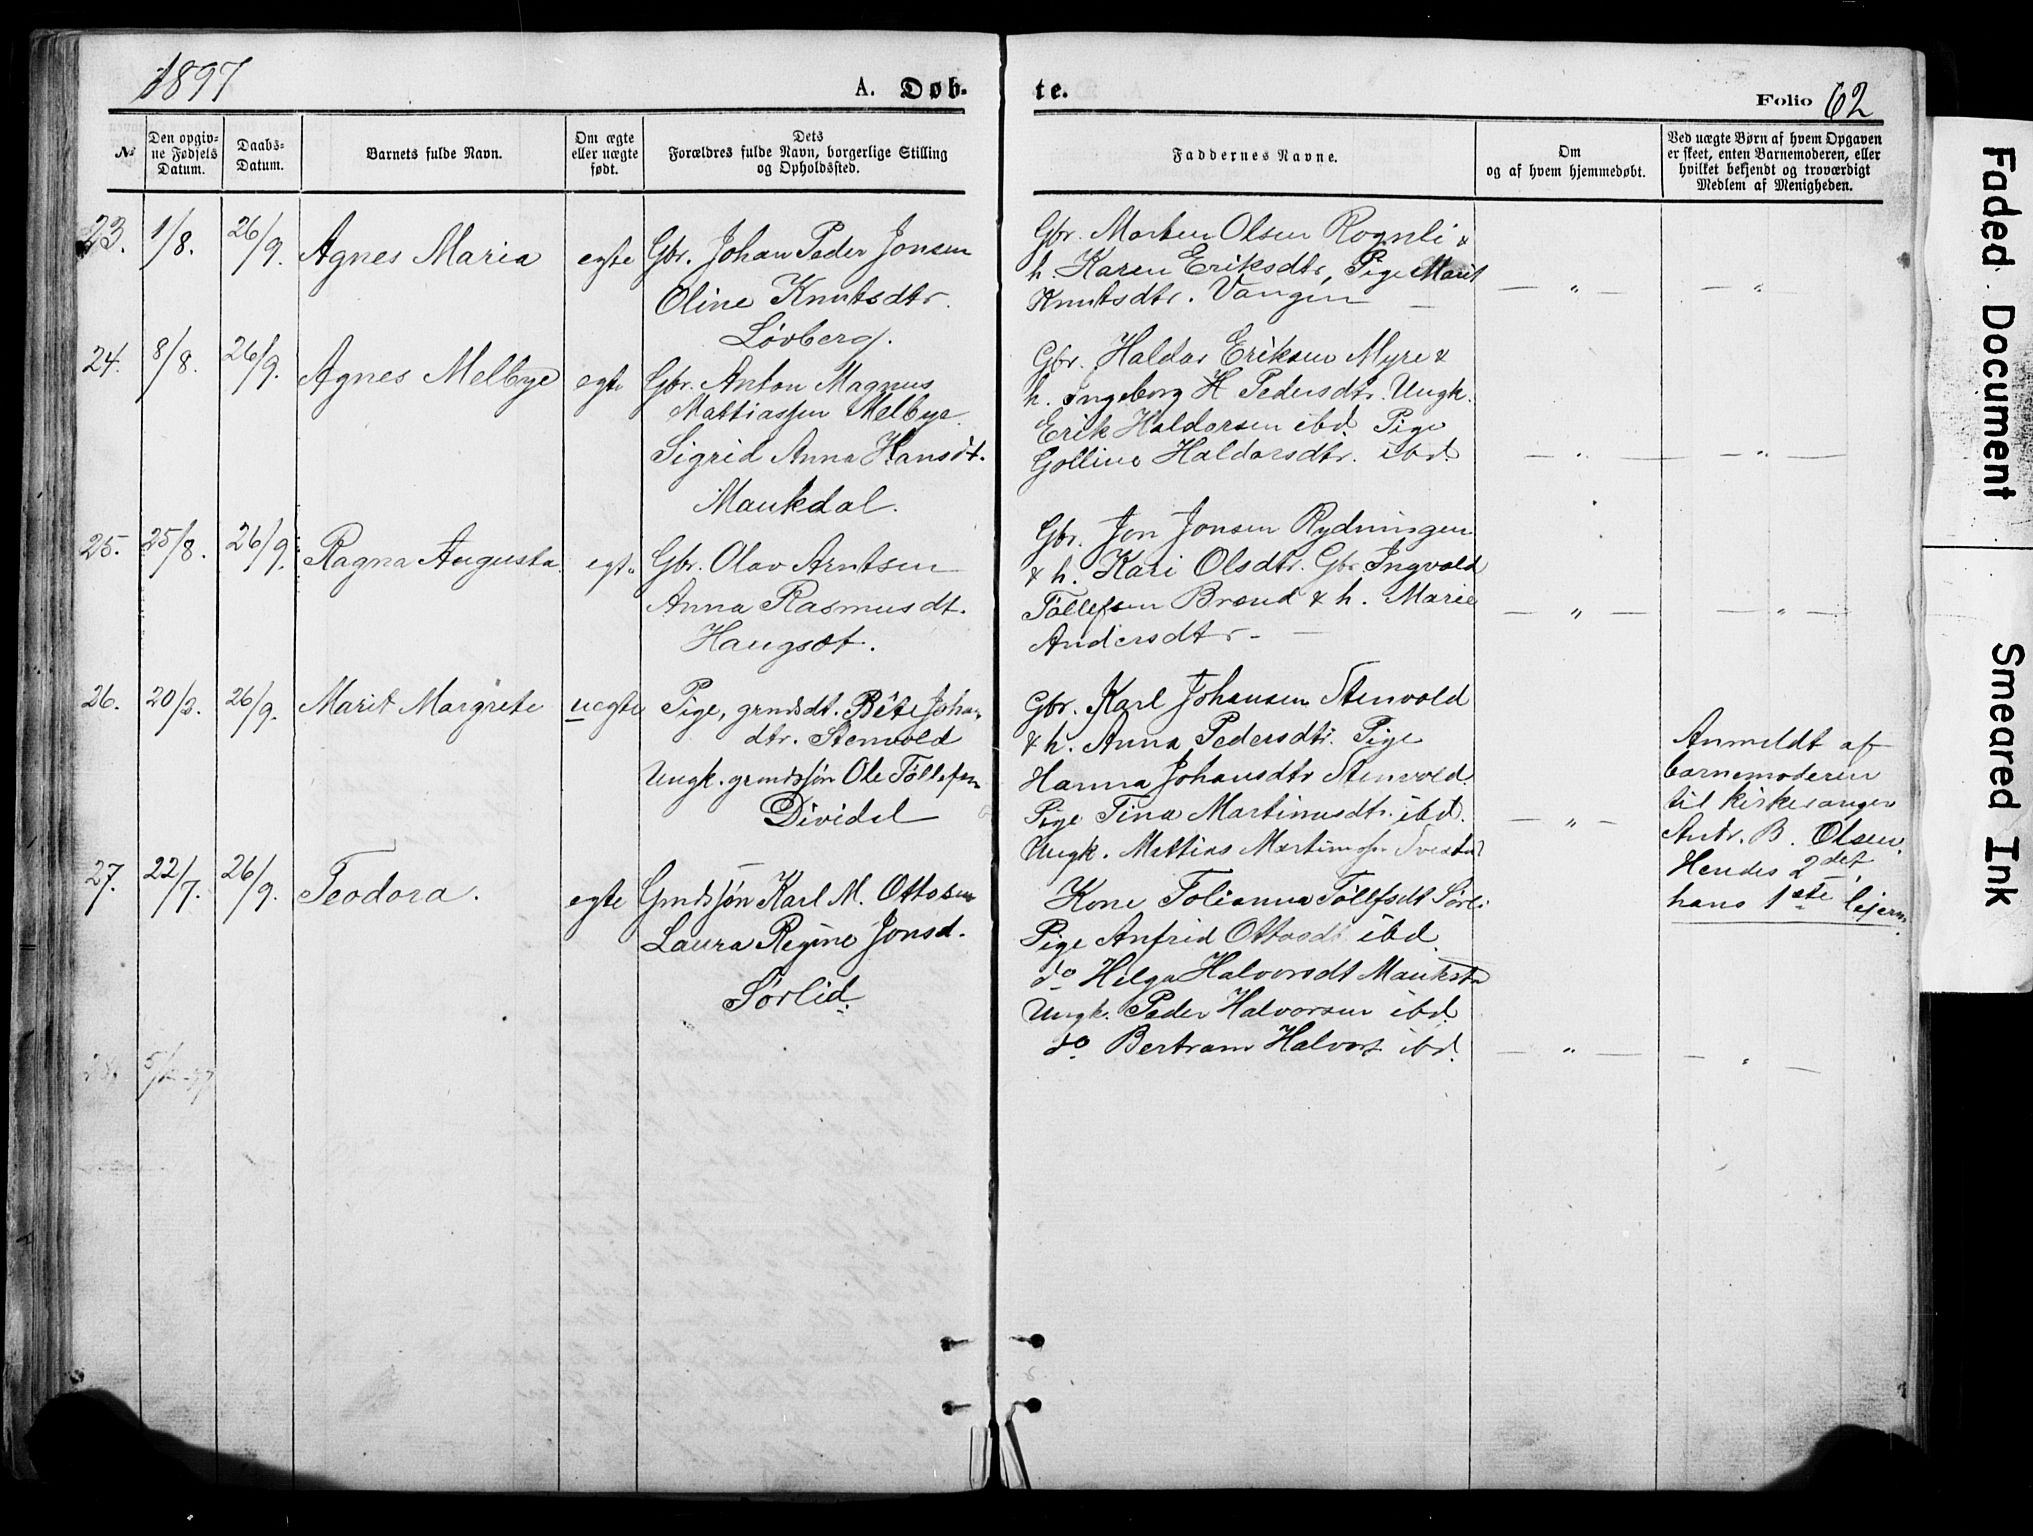 1897
A. Døb-
te.
Folio 62
№
Den opgiv-
ne Fødsels
Datum.
Daabs-
Datum.
Barnets fulde Navn.
Om ægte
eller uægte
født.
Dets
Forældres fulde Navn, borgerlige Stilling
og Opholdssted.
Faddernes Navne.
Om
og af hvem hjemmedøbt.
Ved uægte Børn af hvem Opgaven
er skeet, enten Barnemoderen, eller
hvilket bekjendt og troværdigt
Medlem af Menigheden.
23. 1/8. 26/9. Agnes Maria egte
Gbr. Johan Peder Jonsen
Oline Knutsdtr.
Løvberg.
Gbr. Morten Olsen Rognli &
h. Karen Eriksdtr, Pige Marit
Knutsdtr. Vangen —
— „ — — „ —
24. 8/8. 26/9. Agnes Melbye egte
Gbr. Anton Magnus
Mattiassen Melbye.
Sigrid Anna Hansdt.
Maukdal.
Gbr. Haldor Eriksen Myre &
h. Ingeborg H Pedersdtr. Ungk.
Erik Haldorsen ibd Pige
Golline Haldorsdtr. ibd.
— „ — — „ —
25. 25/8. 26/9. Ragna Augusta egte
Gbr. Olav Arntsen
Anna Rasmusdt.
Haugset.
Gbr. Jon Jonsen Rydningen
& h. Kari Olsdtr. Gbr. Ingvold
Tollefsen Brend & h. Marie
Andersdtr — —
— „ — — „ —
26. 20/3. 26/9. Marit Margrete uegte
Pige, grndsdt. Bete Joha
dtr. Stenvold
Ungk. grundssøn Ole Tollefsen
Dividal
Gbr. Karl Johansen Stenvold
& h. Anna Pedersdtr. Pige
Hanna Johansdtr Stenvold.
Pige Tina Martinusdtr. ibd.
Ungk. Mattias Martinusn
— „ —
Anmeldt af
barnemoderen
til kirkesanger
Andr. B. Olsen.
Hendes 2det,
hans 1ste lejerm.
27. 22/7. 26/9. Teodora. egte
Grndssøn Karl M. Ottosen
Laura Regine Jonsd.
Sørlid.
Kone Tolianna Tollefsdt Sørli
Pige Anfrid Ottosdt ibd.
do Helga Halvorsdt Maukstd
Ungk. Peder Halvorsen ibd.
do Bertram Halvors ibd.
— „ — — „ —
28. 5/12-97
Faded Document
Smeared Ink